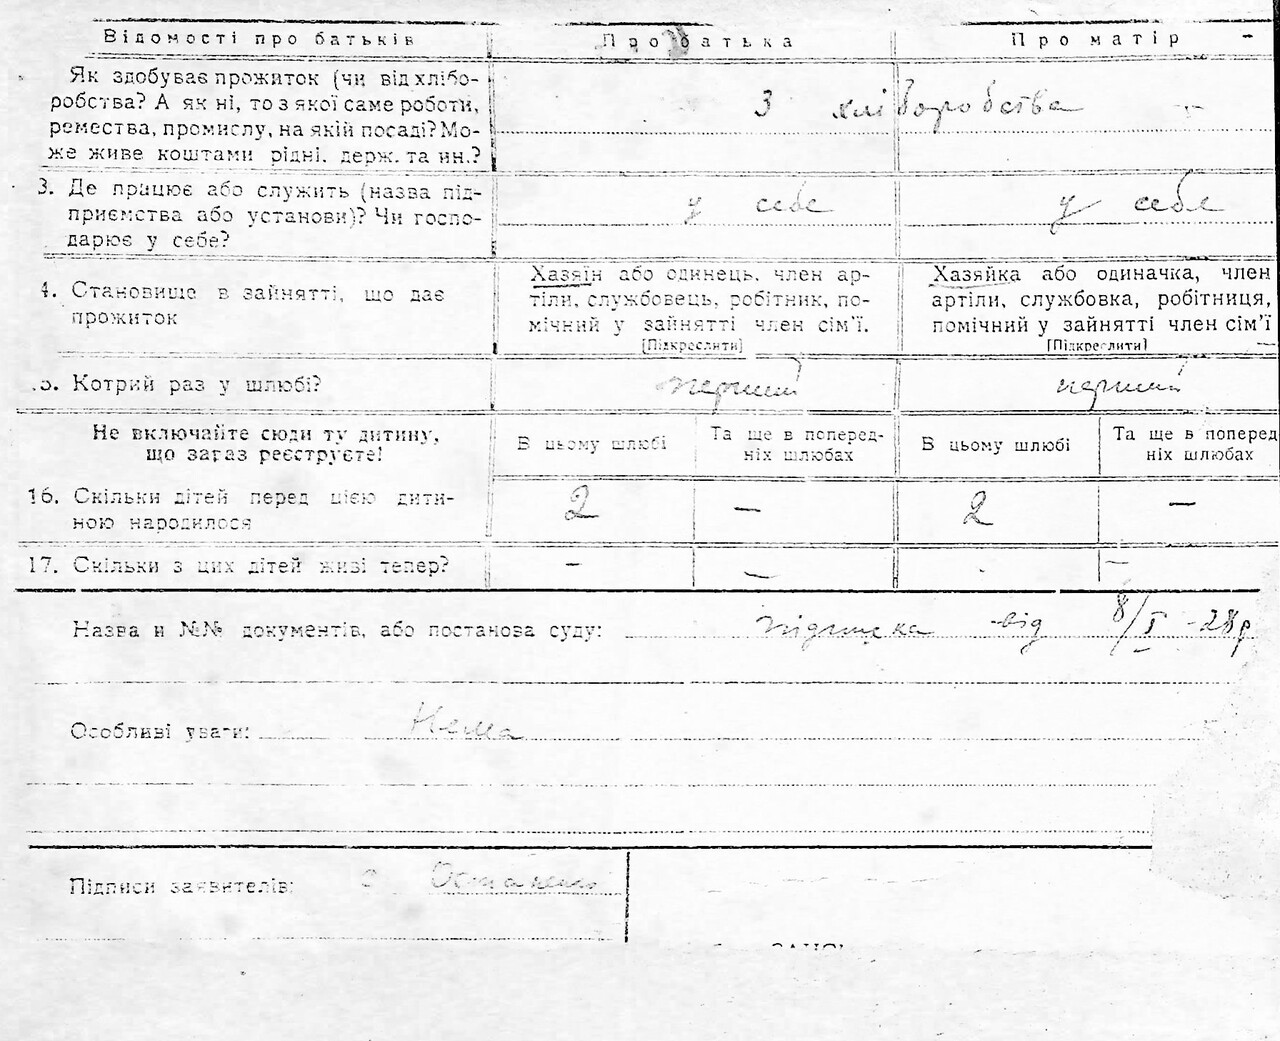 Відомості про батьків Про батька Про матір -
Як здобуває прожиток (чи від хлібо-
робства? А як ні, то з якої саме роботи,
ремества, промислу, на якій посаді? Мо-
же живе коштами рідні, держ. та ин.?
З хліборобства
3. Де працює або служить (назва під-
приємства або установи)? Чи госпо-
дарює у себе?
у себе у себе
4. Становище в зайнятті, що дає
прожиток
Хазяїн або одинець, член ар-
тіли, службовець, робітник, по-
мічний у зайнятті член сім'ї.
[Підкреслити]
Хазяйка або одиначка, член
артіли, службовка, робітниця,
помічний у зайнятті член сім'ї
[Підкреслити]
5. Котрий раз у шлюбі? перший перший
Не включайте сюди ту дитину,
що зараз реєструєте!
В цьому шлюбі
Та ще в поперед-
ніх шлюбах
В цьому шлюбі
Та ще в поперед
ніх шлюбах
16. Скільки дітей перед цією дити-
ною народилося
2 — 2 —
17. Скільки з цих дітей живі тепер? – – –
Назва и №№ документів, або постанова суду: підписка від 8/I -28р
Особливі уваги: Нема
Підписи заявителів: